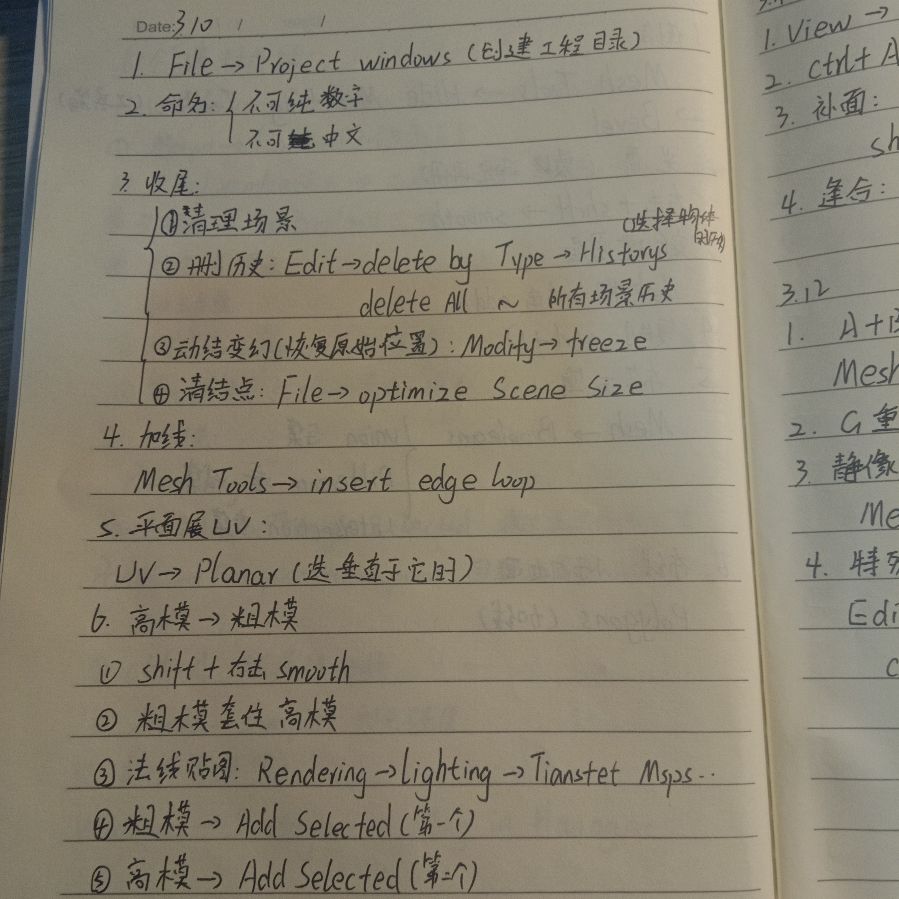 Date: 3/10 / /
1. File → Project windows (创建工程目录)
2. 命名: 不可纯数字
不可 中文
3. 收尾:
①清理场景
(选择物体的历史)
② 删历史: Edit→delete by Type → Historys
delete All ~ 所有场景历史
③动结变幻(恢复原始位置): Modify→freeze
④ 清结点: File→ optimize Scene Size
4. 加线:
Mesh Tools→ insert edge loop
5. 平面展UV:
UV→ Planar (选垂直于它的)
6. 高模 → 粗模
① shift + 右击 smooth
② 粗模套住高模
③ 法线贴图: Rendering →lighting → Tianstet Msps..
④ 粗模 → Add Selected (第一个)
⑤ 高模 → Add Selected (第二个)
1. View →
2. Ctrl+A
3. 补面:
sh
4. 逢合:
3.12
1. A+B
Mesh
2. G重
3. 静像
Me
4. 特殊
Edi
c